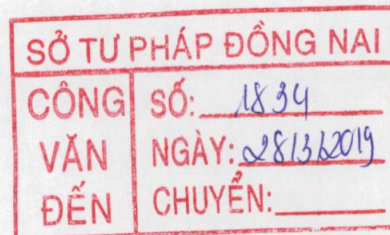 SỞ TƯ PHÁP ĐỒNG NAI
CÔNG VĂN ĐẾN
SỐ: 1834
NGÀY: 28/3/2019
CHUYỂN: